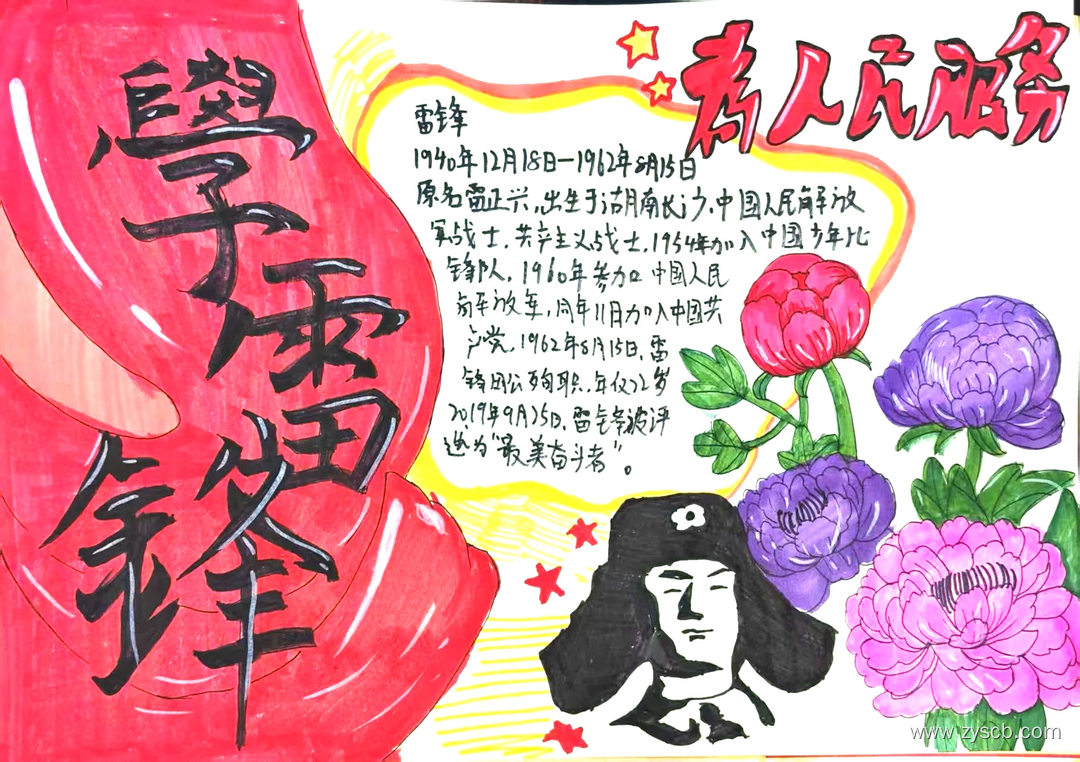 學雷鋒
為人民服务
雷锋
1940年12月18日—1962年8月15日
原名雷正兴,出生于湖南长沙,中国人民解放
军战士,共产主义战士,1954年加入中国少年先
锋队,1960年参加中国人民
解放军,同年11月加入中国共
产党,1962年8月15日,雷
锋因公殉职,年仅22岁
2019年9月25日,雷锋被评
选为“最美奋斗者”。
www.zyscb.com